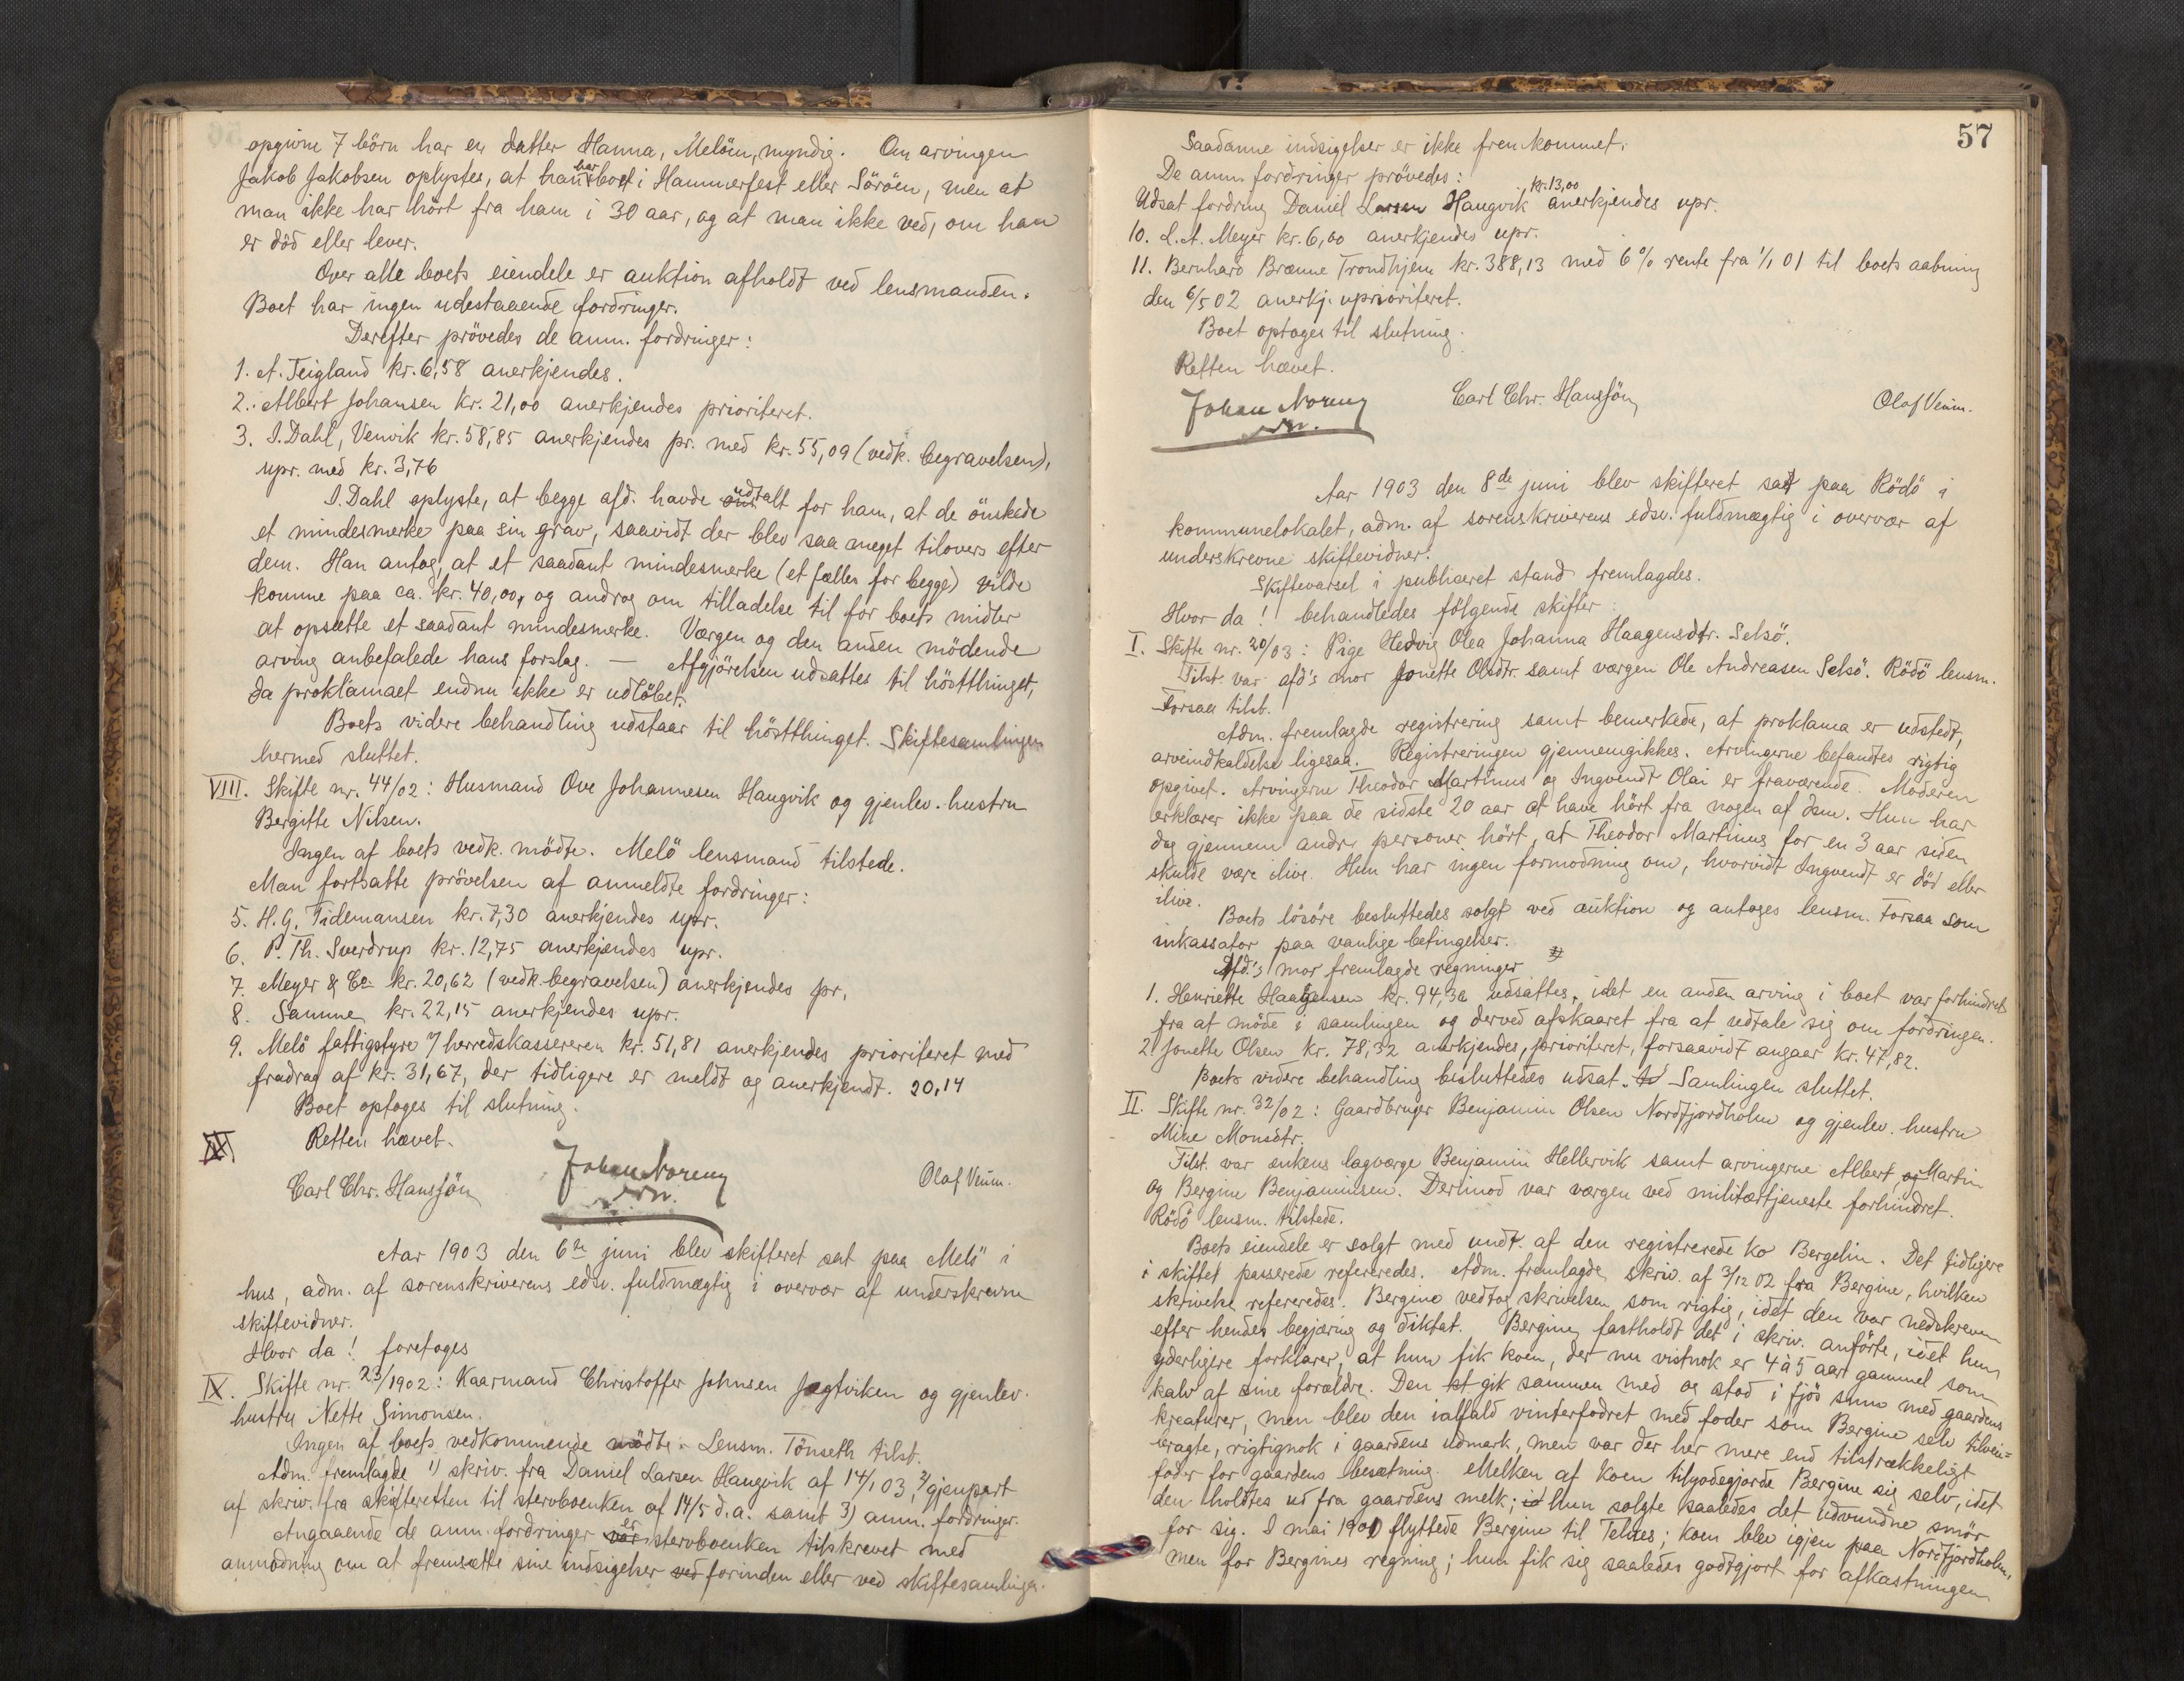 opgivne 7 börn har en datter Hanna, Melöen, myndig. Om arvingen
Jakob Jakobsen oplystes, at han har boet i Hammerfest eller Söröen, men at
man ikke har hört fra ham i 30 aar, og at man ikke ved, om han
er död eller lever.
Over alle boets eiendele er auktion afholdt ved lensmanden.
Boet har ingen udestaaende fordringer.
Derefter prövedes de anm. fordringer:
1. A. Teigland kr. 6,58 anerkjendes.
2. Albert Johansen kr. 21,00 anerkjendes prioriteret.
3. I. Dahl, Venvik kr. 58,85 anerkjendes pr. med kr. 55,09 (vedk. begravelsen),
upr. med kr. 3,76
I. Dahl oplyste, at begge afd. havde udtalt for ham, at de önskede
et mindesmerke paa sin grav, saavidt der blev saa meget tilovers efter
dem. Han antog, at et saadant mindesmerke (et fælles for begge) vilde
komme paa ca. kr. 40,00, og androg om tilladelse til for boets midler
at opsætte et saadant mindesmerke. Værgen og den anden mödende
arving anbefalede hans forslag. — Afgjörelsen udsattes til höstthinget,
da proklamaet endnu ikke er udlöbet.
Boets videre behandling udstaar til höstthinget. Skiftesamlingen
hermed sluttet.
VIII. Skifte nr. 44/02: Husmand Ove Johannesen Haugvik og gjenlev. hustru
Bergitte Nilsen.
Ingen af boets vedk. mödte. Melö lensmand tilstede.
Man fortsatte prövelsen af anmeldte fordringer:
5. H. G. Tidemansen kr. 7,30 anerkjendes upr.
6. P. Th. Sverdrup kr. 12,75 anerkjendes upr.
7. Meyer & Co. kr. 20,62 (vedk. begravelsen) anerkjendes pr.
8. Samme kr. 22,15 anerkjendes upr.
9. Melö fattigstyre v/ herredskassereren kr. 51,81 anerkjendes prioriteret med
fradrag af kr. 31,67, der tidligere er meldt og anerkjendt. 20,14
Boet optoges til slutning.
Retten hævet.
Carl Chr. Hansjön Johan Noreng Olaf Veum.
Aar 1903 den 6te juni blev skifteret sat paa Melö i
hus, adm. af sorenskriverens edsv. fuldmægtig i overvær af underskrevne
skiftevidner.
Hvor da! foretoges
IX. Skifte nr. 23/1902: Kaarmand Christoffer Johnsen Jægtviken og gjenlev.
hustru Nette Simonsen.
Ingen af boets vedkommende mödte. Lensm. Tönseth tilst.
Adm. fremlagde 1) skriv. fra Daniel Larsen Haugvik af 14/1 03, 2) gjenpart
af skriv. fra skifteretten til stervboenken af 14/5 d. a. samt 3) anm. fordringer.
Angaaende de anm. fordringer er stervboenken tilskrevet med
anmodning om at fremsætte sine indsigelser ved forinden eller ved skiftesamlingen.
57
Saadanne indsigelser er ikke fremkommet.
De anm. fordringer prövedes:
Udsat fordring Daniel Larsen Haugvik kr. 13,00 anerkjendes upr.
10. L. A. Meyer kr. 6,00 anerkjendes upr.
11. Bernhard Brænne Trondhjem kr. 388,13 med 6 % rente fra 1/1 01 til boets aabning
den 6/5 02 anerkj. uprioriteret.
Boet optoges til slutning.
Retten hævet.
Johan Noreng Carl Chr. Hansjön Olaf Veum.
Aar 1903 den 8de juni blev skifteret sat paa Rödö i
kommunelokalet, adm. af sorenskriverens edsv. fuldmægtig i overvær af
underskrevne skiftevidner.
Skiftevarsel i publiceret stand fremlagdes.
Hvor da! behandledes fölgende skifter:
I. Skifte nr. 20/03: Pige Hedvig Olea Johanna Haagensdtr. Selsö.
Tilst. var afd's mor Jonette Olsdtr. samt værgen Ole Andreasen Selsö. Rödö lensm.
Forsaa tilst.
Adm. fremlagde registrering samt bemerkede, at proklama er udstedt,
arveindkaldelse ligesaa. Registreringen gjennemgikkes. Arvingerne befandtes rigtig
opgivet. Arvingerne Theodor Martinus og Ingvendt Olai er fraværende. Moderen
erklærer ikke paa de sidste 20 aar at have hört fra nogen af dem. Hun har
dog gjennem andre personer hört, at Theodor Martinus for en 3 aar siden
skulde være ilive. Hun har ingen formodning om, hvorvidt Ingvendt er död eller
ilive.
Boets lösöre besluttedes solgt ved auktion og antoges lensm. Forsaa som
inkassator paa vanlige betingelser.
Afd.'s mor fremlagde regninger
1. Henriette Haagensen kr. 94,30 udsattes, idet en anden arving i boet var forhindret
fra at möde i samlingen og derved afskaaret fra at udtale sig om fordringen.
2. Jonette Olsen kr. 78,32 anerkjendes, prioriteret, forsaavidt angaar kr. 47,82.
Boets videre behandling besluttedes udsat. Samlingen sluttet.
II. Skifte nr. 32/02: Gaardbruger Benjamin Olsen Nordfjordholm og gjenlev. hustru
Mine Monsdtr.
Tilst. var enkens lagværge Benjamin Hellervik samt arvingerne Albert, og Martin
og Bergine Benjaminsen. Derimod var værgen ved militærtjeneste forhindret.
Rödö lensm. tilstede.
Boets eiendele er solgt med undt. af den registrerede ko Bergelin. Det tidligere
i skiftet passerede refereredes. Adm. fremlagde skriv. af 3/12 02 fra Bergine, hvilken
skrivelse refereredes. Bergine vedtog skrivelsen som rigtig, idet den var nedskreven
efter hendes begjæring og diktat. Bergine fastholdt det i skriv. anförte, idet hun
yderligere forklarer, at hun fik koen, der nu vistnok er 4 à 5 aar gammel som
kalv af sine forældre. Den gik sammen med og stod i fjös smn med gaardens
kreaturer, men blev den ialfald vinterfodret med foder som Bergine selv tilvei=
bragte, rigtignok i gaardens udmark, men var der her mere end tilstrækkeligt
foder for gaardens besætning. Melken af koen tilgodegjorde Bergine sig selv, idet
den holdtes ud fra gaardens melk; hun solgte saaledes det udvundne smör
for sig. I mai 1901 flyttede Bergine til Telnes; koen blev igjen paa Nordfjordholm,
men for Bergines regning; hun fik sig saaledes godtgjort for afkastningen